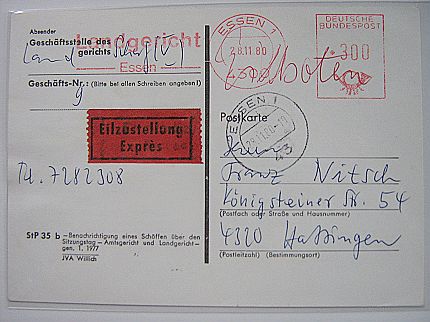 Absender
Geschäftsstelle des
gerichts
Landgericht
Essen
Geschäfts-Nr.: (Bitte bei allen Schreiben angeben!)
Eilzustellung
Exprès
Tel. 7282308
StP 35 b - Benachrichtigung eines Schöffen über den
Sitzungstag - Amtsgericht und Landgericht-
gen. 1. 1977
JVA Willich
ESSEN 1
28.11.80
DEUTSCHE
BUNDESPOST
300
ESSEN 1
43
Postkarte
Herrn
Franz Nitsch
Königsteiner Str. 54
(Postfach oder Straße und Hausnummer)
4320 Hattingen
(Postleitzahl) (Bestimmungsort)